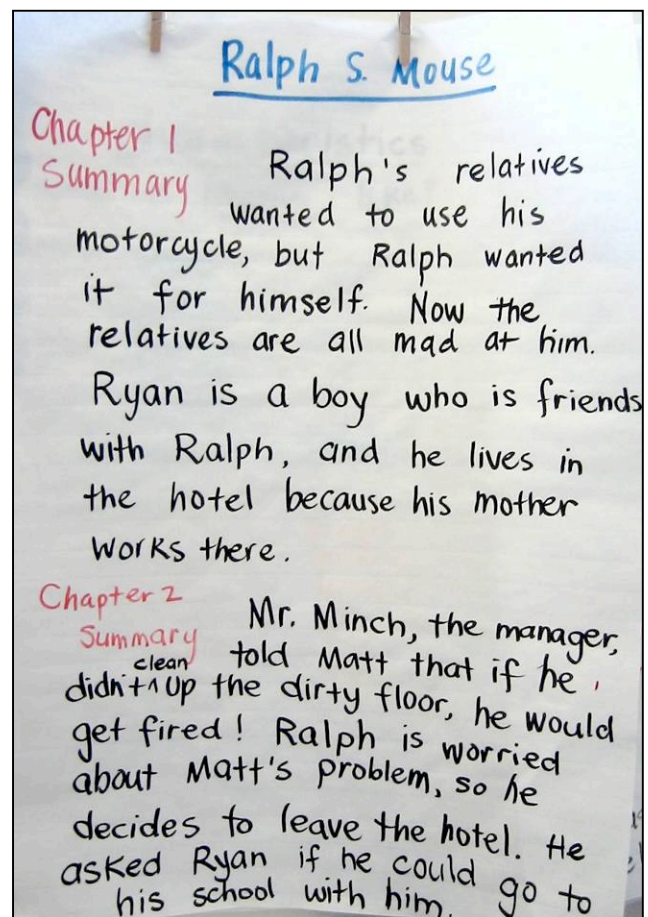 Ralph S. Mouse
Chapter 1
Summary
Ralph's relatives
wanted to use his
motorcycle, but Ralph wanted
it for himself. Now the
relatives are all mad at him.
Ryan is a boy who is friends
with Ralph, and he lives in
the hotel because his mother
works there.
Chapter 2
Summary
Mr. Minch, the manager,
told Matt that if he
clean
didn't ^ up the dirty floor, he would
get fired! Ralph is worried
about Matt's problem, so he
decides to leave the hotel. He
asked Ryan if he could go to
his school with him.